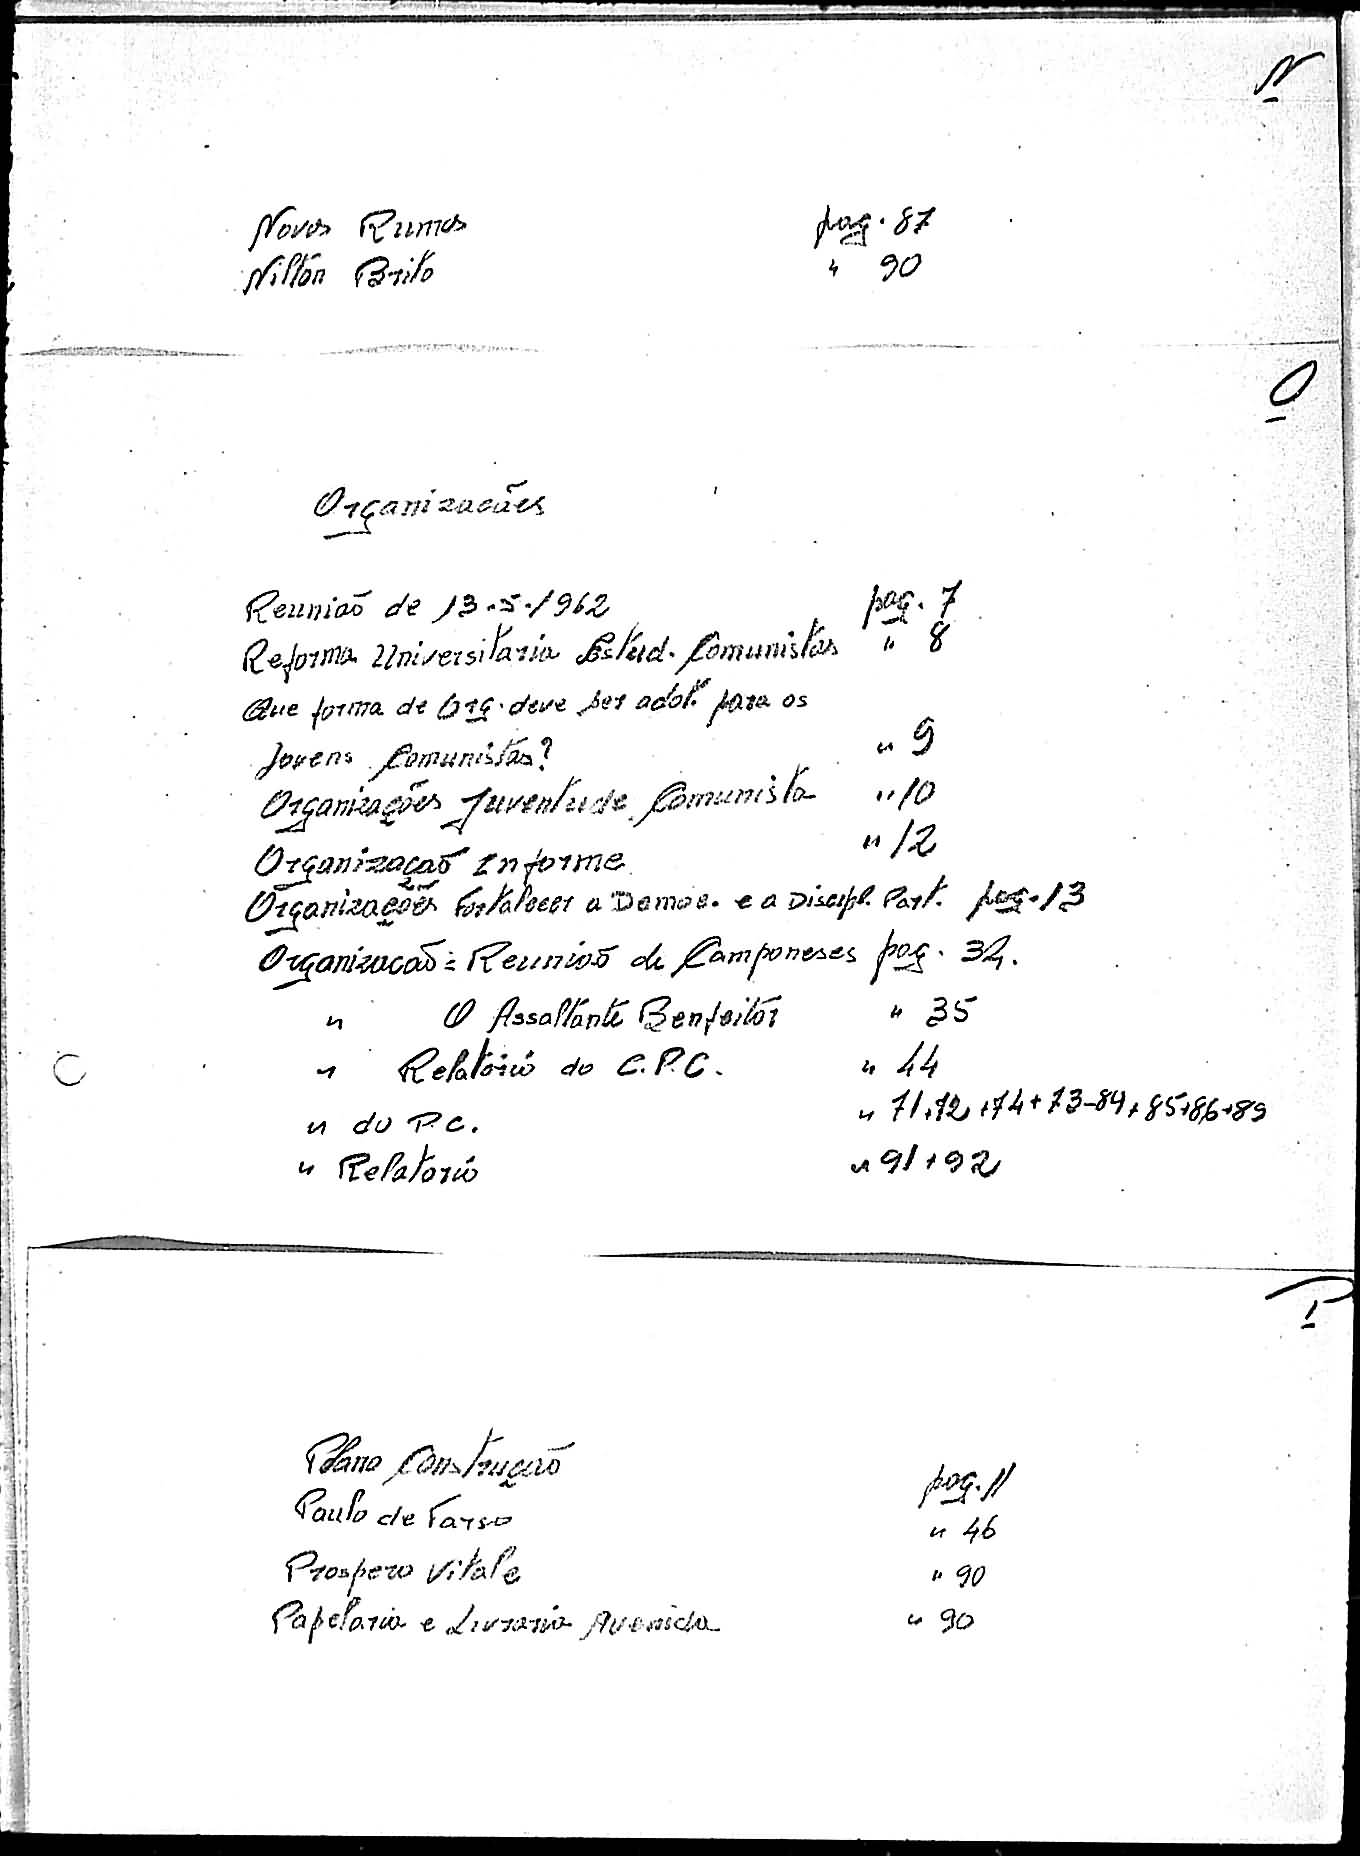 N
Novos Rumos pag. 87
Nilton Brito " 90
O
Organizacões
Reunião de 13-5-1962 pag. 7
Reforma Universitaria Estud. Comunistas " 8
Que forma de Org. deve ser adot. para os
Jovens Comunistas? " 9
Organizações Juventude Comunista " 10
Organização Informe " 12
Organizações Fortalecer a Democ. e a Discipl. Part. pag. 13
Organizacão = Reunião de Camponeses pag. 32.
" O Assaltante Benfeitor " 35
" Relatório do C.P.C. " 44
" do P.C. " 71+72+74+73-84+85+86+89
" Relatorio " 91+92
P
Plano Construção pag. 11
Paulo de Tarso " 46
Prospero Vitale " 90
Papelaria e Livraria Avenida " 90